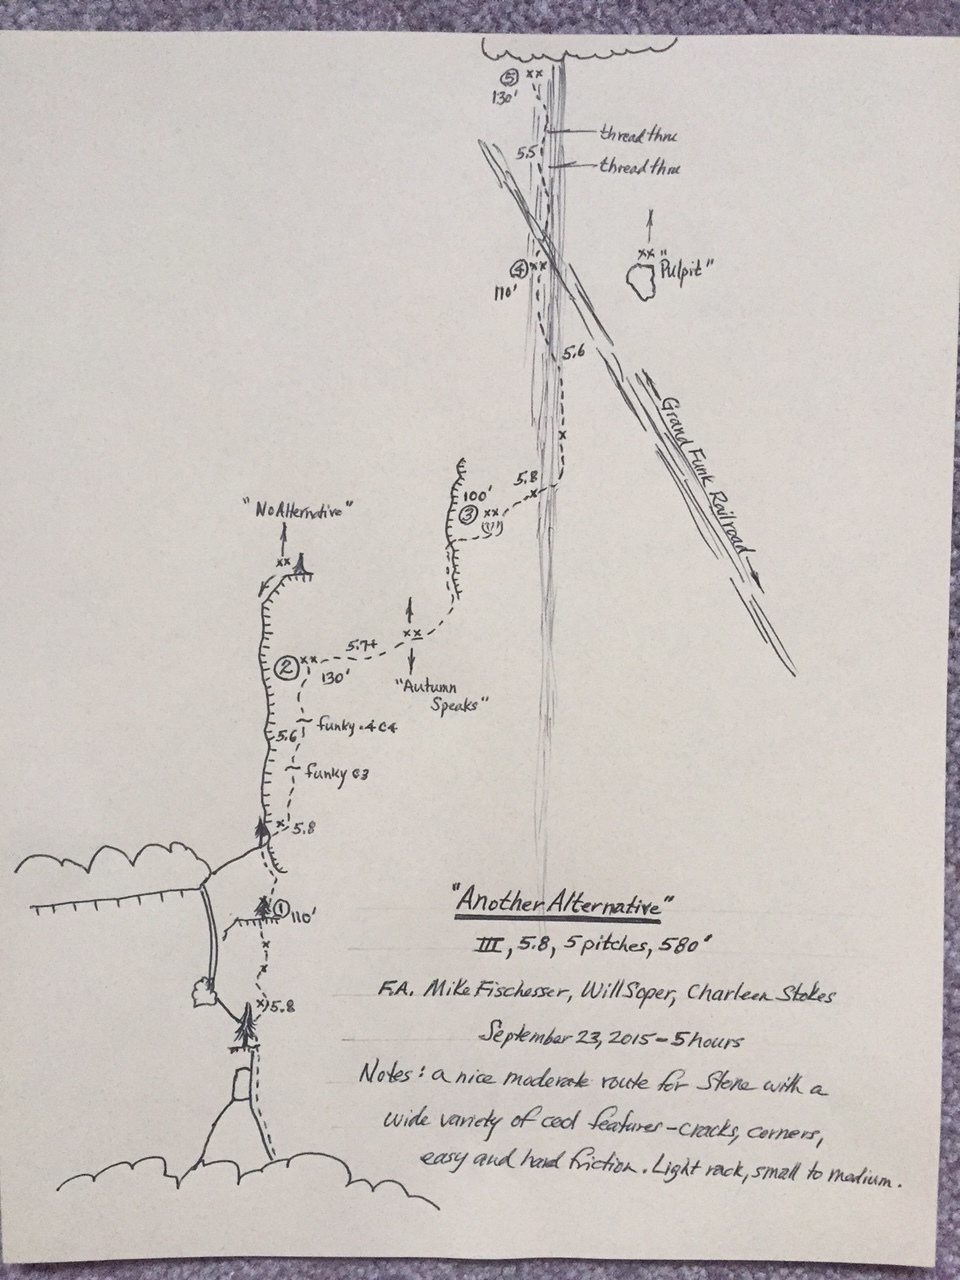 ⑤ xx
130'
thread thru
5.5
thread thru
xx
"Pulpit"
④ xx
110'
5.6
Grand Funk Railroad
x
5.8
x
100'
③ xx
"No Alternative"
xx
xx
5.7+
② xx
130'
"Autumn
Speaks"
funky .4 C4
5.6
funky C3
x 5.8
① 110'
x
x
x 5.8
"Another Alternative"
III, 5.8, 5 pitches, 580'
F.A. Mike Fischesser, Will Soper, Charleen Stokes
September 23, 2015 - 5 hours
Notes: a nice moderate route for Stone with a
wide variety of cool features - cracks, corners,
easy and hard friction. Light rack, small to medium.